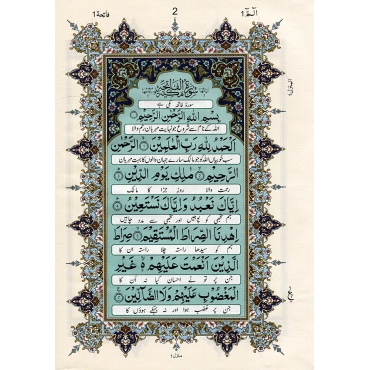 فاتحة ١
2
الٓمّٓ ١
سورۃ فاتحہ مکی ہے
بِسْمِ اللهِ الرَّحْمٰنِ الرَّحِيْمِ
اللہ کے نام سے شروع جو نہایت مہربان رحم والا
اَلْحَمْدُ لِلّٰهِ رَبِّ الْعٰلَمِيْنَ ۙ الرَّحْمٰنِ
سب خوبیاں اللہ کو جو مالک سارے جہان والوں کا بہت مہربان
الرَّحِيْمِ ۙ مٰلِكِ يَوْمِ الدِّيْنِ
رحمت والا روز جزا کا مالک
اِيَّاكَ نَعْبُدُ وَاِيَّاكَ نَسْتَعِيْنُ
ہم تجھی کو پوجیں اور تجھی سے مدد چاہیں
اِهْدِنَا الصِّرَاطَ الْمُسْتَقِيْمَ ۙ صِرَاطَ
ہم کو سیدھا راستہ چلا راستہ ان کا
الَّذِيْنَ اَنْعَمْتَ عَلَيْهِمْ ۙ غَيْرِ
جن پر تو نے احسان کیا نہ ان کا
الْمَغْضُوْبِ عَلَيْهِمْ وَلَا الضَّآلِّيْنَ
جن پر غضب ہوا اور نہ بہکے ہوؤں کا
منزل ١